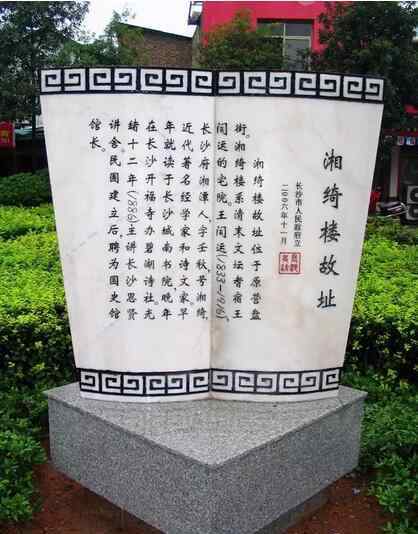 湘绮楼故址
长沙市人民政府立
二00六年十一月
湘绮楼故址位于原营盘
街。湘绮楼系清末文坛耆宿王
闿运的宅院。王闿运(1833-1916),
长沙府湘潭人,字壬秋,号湘绮,
近代著名经学家和诗文家。早
年就读于长沙城南书院,晚年
在长沙开福寺办碧湖诗社。光
绪十二年(1886)主讲长沙思贤
讲舍。民国建立后,聘为国史
馆长。